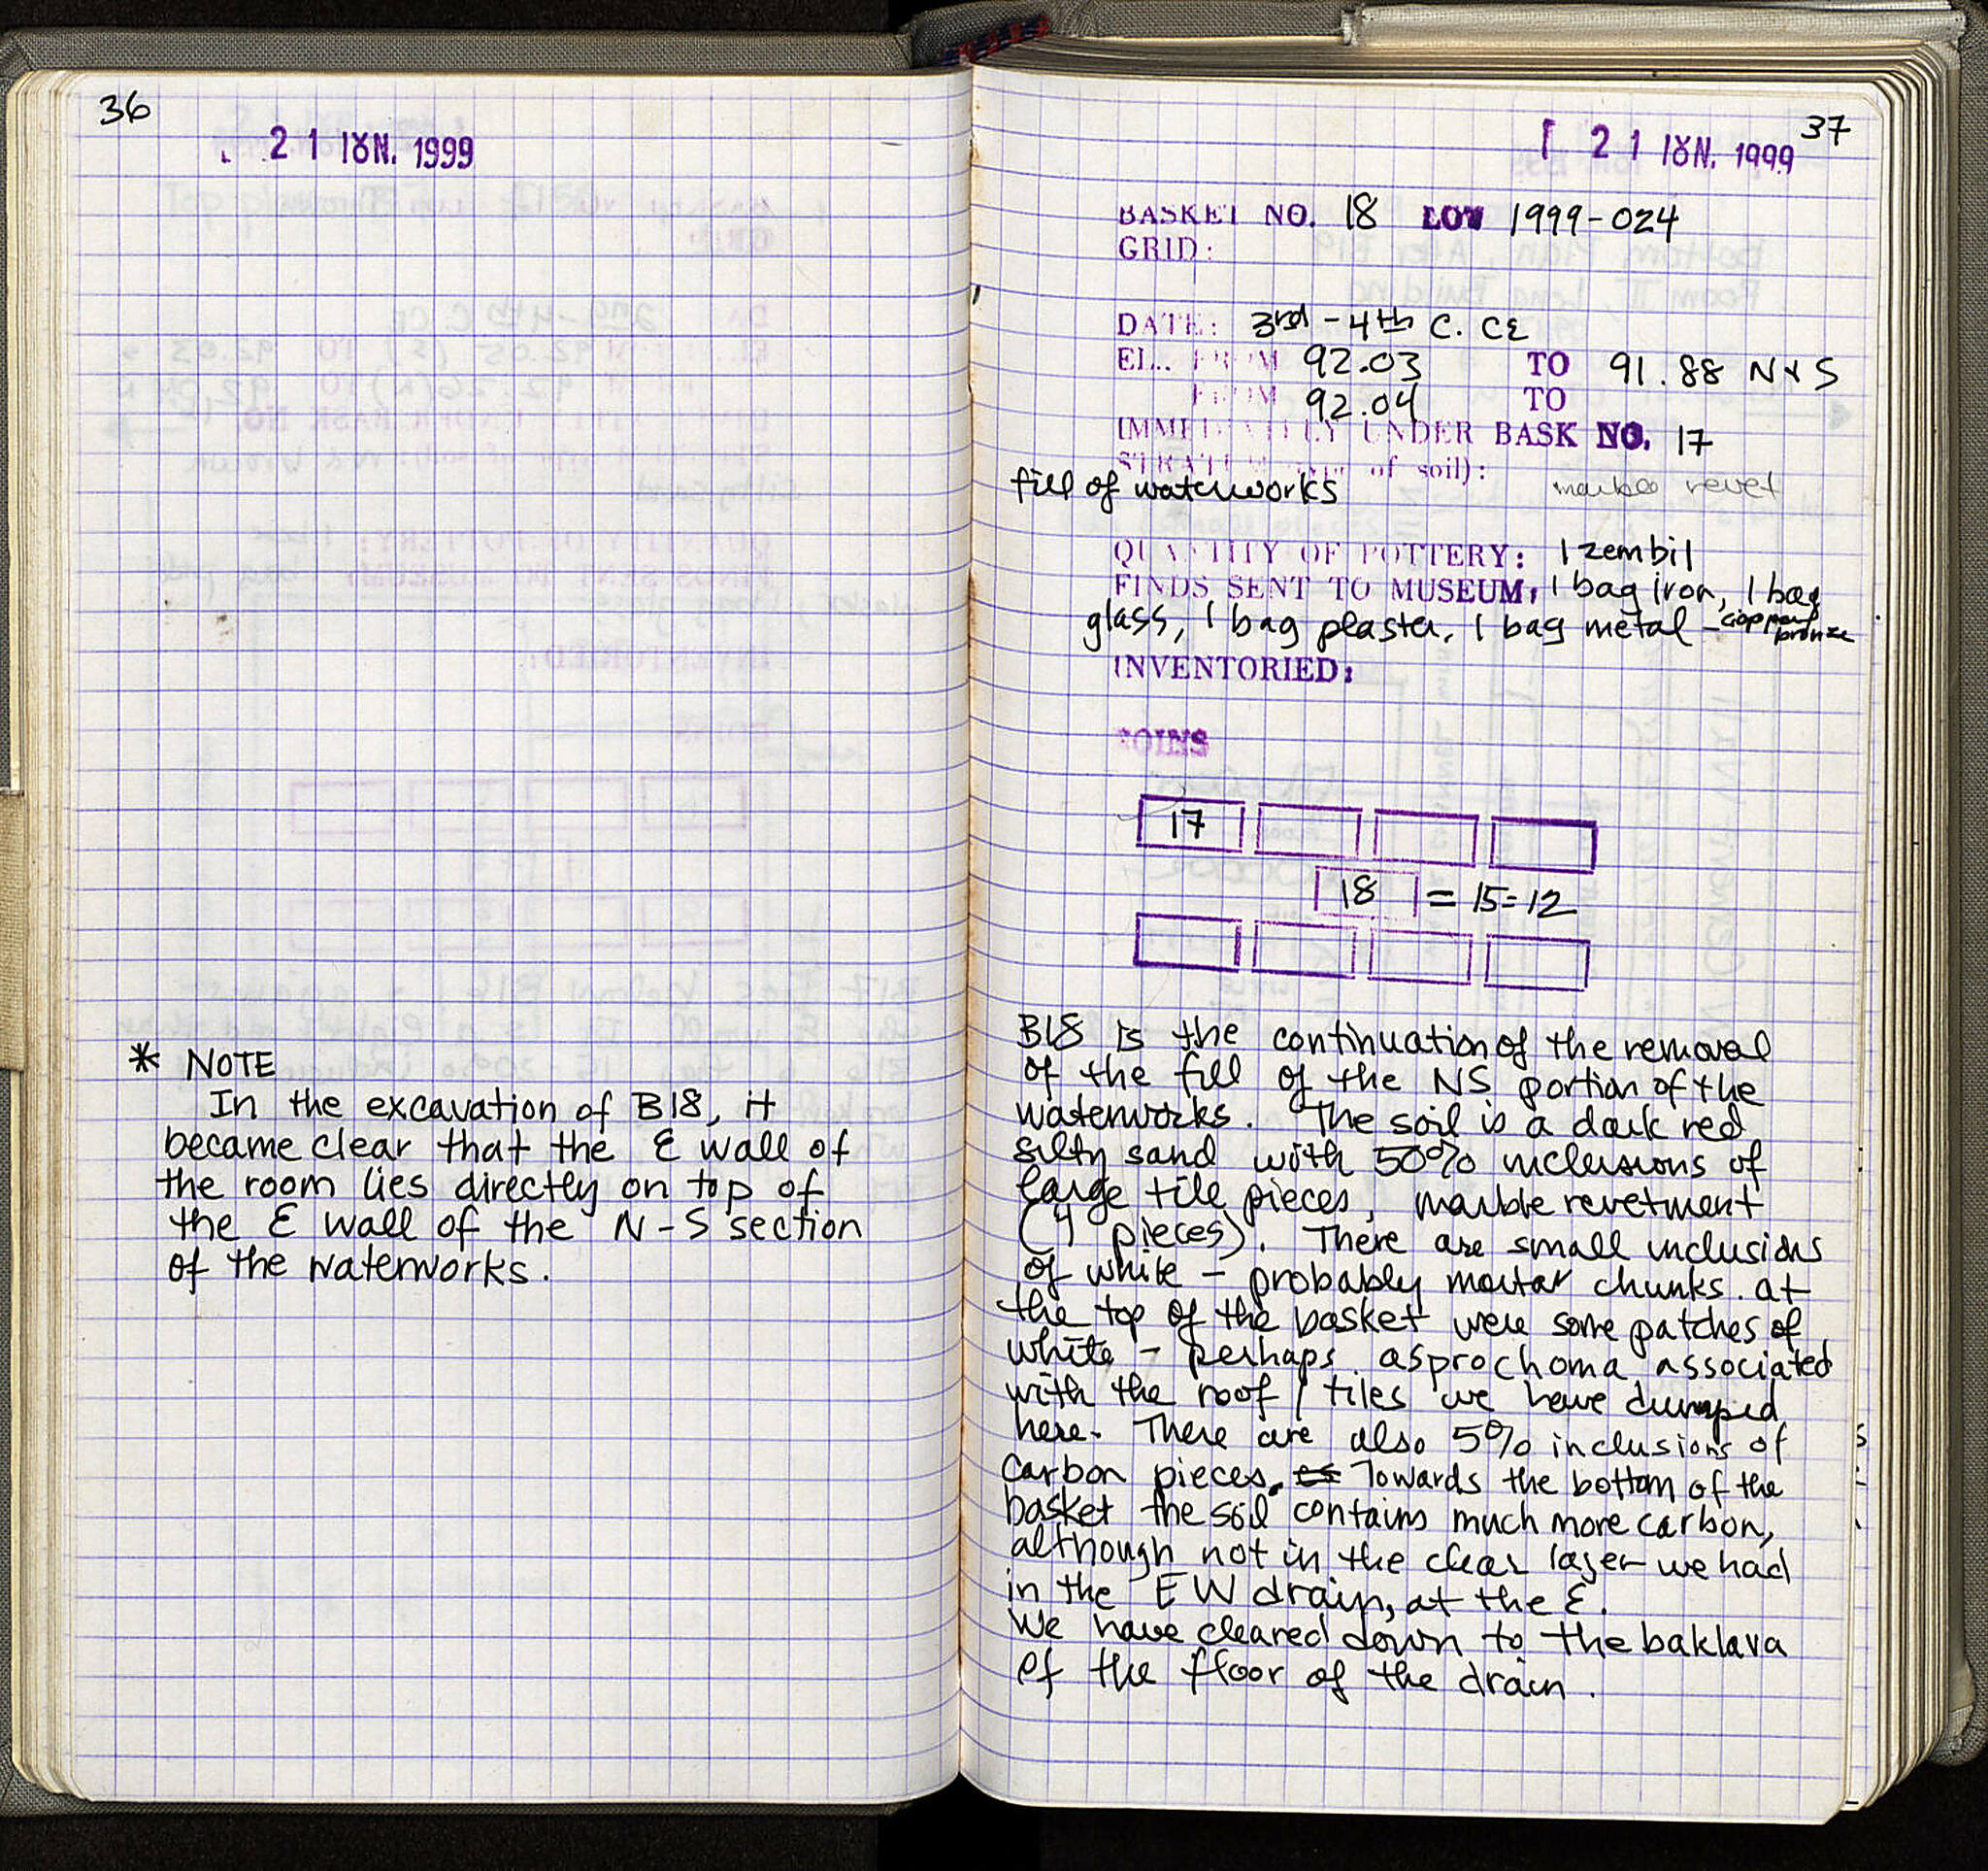 36
21 ΙȣΝ. 1999
* NOTE
In the excavation of B18, it
became clear that the E wall of
the room lies directly on top of
the E wall of the N-S section
of the waterworks.
37
21 ΙȣΝ. 1999
BASKET NO. 18 LOT 1999-024
GRID:
DATE: 3rd - 4th C. CE
EL. FROM 92.03 TO 91.88 N+S
FROM 92.04 TO
IMMEDIATELY UNDER BASK NO. 17
STRATUM (type of soil):
fill of waterworks marble revet
QUANTITY OF POTTERY: 1 zembil
FINDS SENT TO MUSEUM: 1 bag iron, 1 bag
glass, 1 bag plaster, 1 bag metal - copper/
bronze
INVENTORIED:
COINS
17
18 = 15=12
B18 is the continuation of the removal
of the fill of the NS portion of the
waterworks. The soil is a dark red
silty sand with 50% inclusions of
large tile pieces, marble revetment
(4 pieces). There are small inclusions
of white - probably mortar chunks. at
the top of the basket were some patches of
white - perhaps asprochoma associated
with the roof / tiles we have dumped
here. There are also 5% inclusions of
carbon pieces. Towards the bottom of the
basket the soil contains much more carbon,
although not in the clear layer we had
in the EW drain, at the E.
We have cleared down to the baklava
of the floor of the drain.